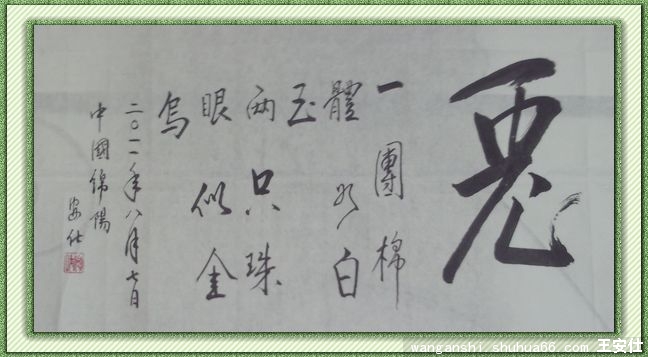 兔
一團棉
體如白
玉
两只珠
眼似金
烏
二〇一一年八月七日
中國綿陽
安仕
wanganshi.shuhua66.com 王安仕